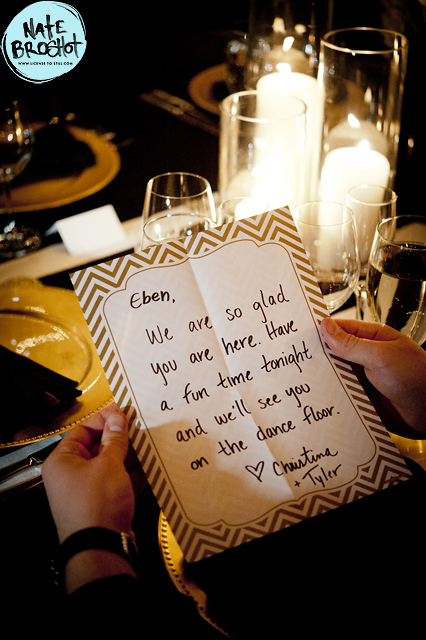 NATE
BROSHOT
WWW.LICENSE-TO-STILL.COM
Eben,
We are so glad
you are here. Have
a fun time tonight
and we'll see you
on the dance floor.
♡ Christina
+ Tyler